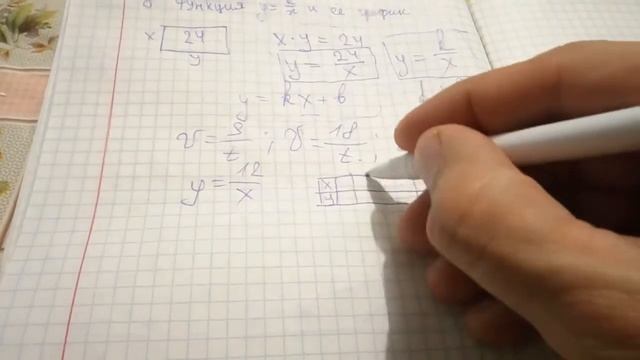 Функция y = k/x и её график
x 24 x · y = 24
y y = 24/x y = k/x
y = kx + b
v = s/t ; v = 18/t ;
y = 12/x x
y